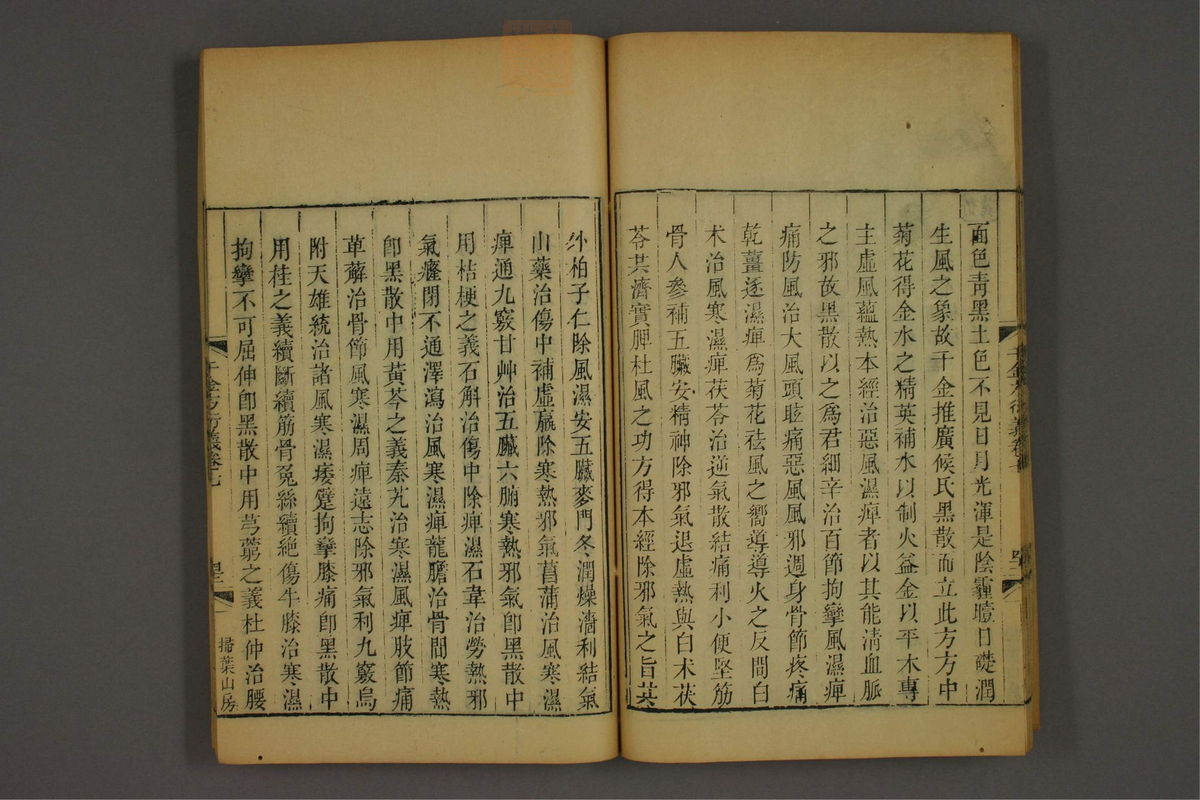 面色靑黑土色不見日月光渾是陰霾曀日礎潤
生風之象故千金推廣候氏黑散而立此方方中
菊花得金水之精英補水以制火益金以平木專
主虛風蘊熱本經治惡風濕痺者以其能淸血脈
之邪故黑散以之爲君細辛治百節拘攣風濕痺
痛防風治大風頭眩痛惡風風邪週身骨節疼痛
乾薑逐濕痺爲菊花祛風之嚮導導火之反間白
术治風寒濕痺茯苓治逆氣散結痛利小便堅筋
骨人參補五臟安精神除邪氣退虛熱與白术茯
苓共濟實脾杜風之功方得本經除邪氣之旨其
外柏子仁除風濕安五臟麥門冬潤燥濇利結氣
山藥治傷中補虛羸除寒熱邪氣菖蒲治風寒濕
痺通九竅甘艸治五臟六腑寒熱邪氣卽黑散中
用桔梗之義石斛治傷中除痺濕石韋治勞熱邪
氣癃閉不通澤瀉治風寒濕痺龍膽治骨間寒熱
卽黑散中用黃芩之義秦艽治寒濕風痺肢節痛
萆薢治骨節風寒濕周痺遠志除邪氣利九竅烏
附天雄統治諸風寒濕痿躄拘攣膝痛卽黑散中
用桂之義續斷續筋骨菟絲續絕傷牛膝治寒濕
拘攣不可屈伸卽黑散中用芎藭之義杜仲治腰
千金方衍義卷七
掃葉山房